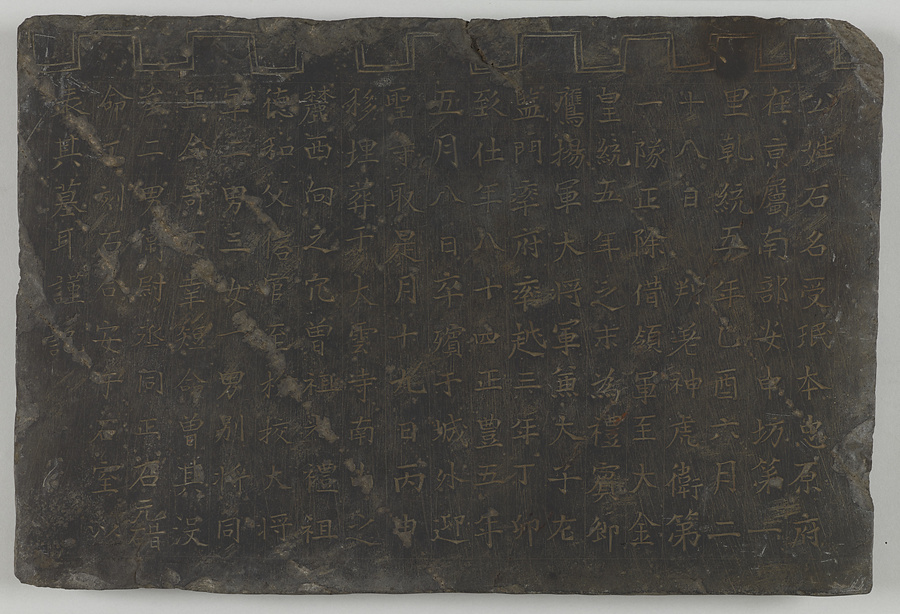 公姓石名受珉本忠原府
在京屬南部安申坊第一
里乹統五年乙酉六月二
十八日判差神虎衛第
一隊正除借領軍至大金
皇統五年之末為禮賓卿
鷹揚軍大將軍兼太子左
監門率府率越三年丁卯
致仕年八十四正豊五年
五月八日卒殯于城外迎
聖寺取是月十九日丙申
移埋葬于太雲寺南之
麓西向之穴曽祖禮祖
德和父信官至檢挍大將
軍二男三女一男別將同
正公奇幸短命曽其没
矣二男衛尉丞同正石元
命工刻石安于石室以
表其墓耳謹誌